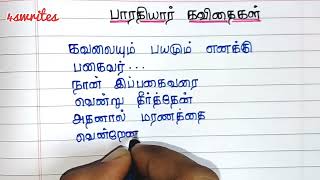 4smrites
பாரதியார் கவிதைகள்
கவலையும் பயமும் எனக்கு
பகைவர்...
நான் இப்பகைவரை
வென்று தீர்த்தேன்
அதனால் மரணத்தை
வென்றேன